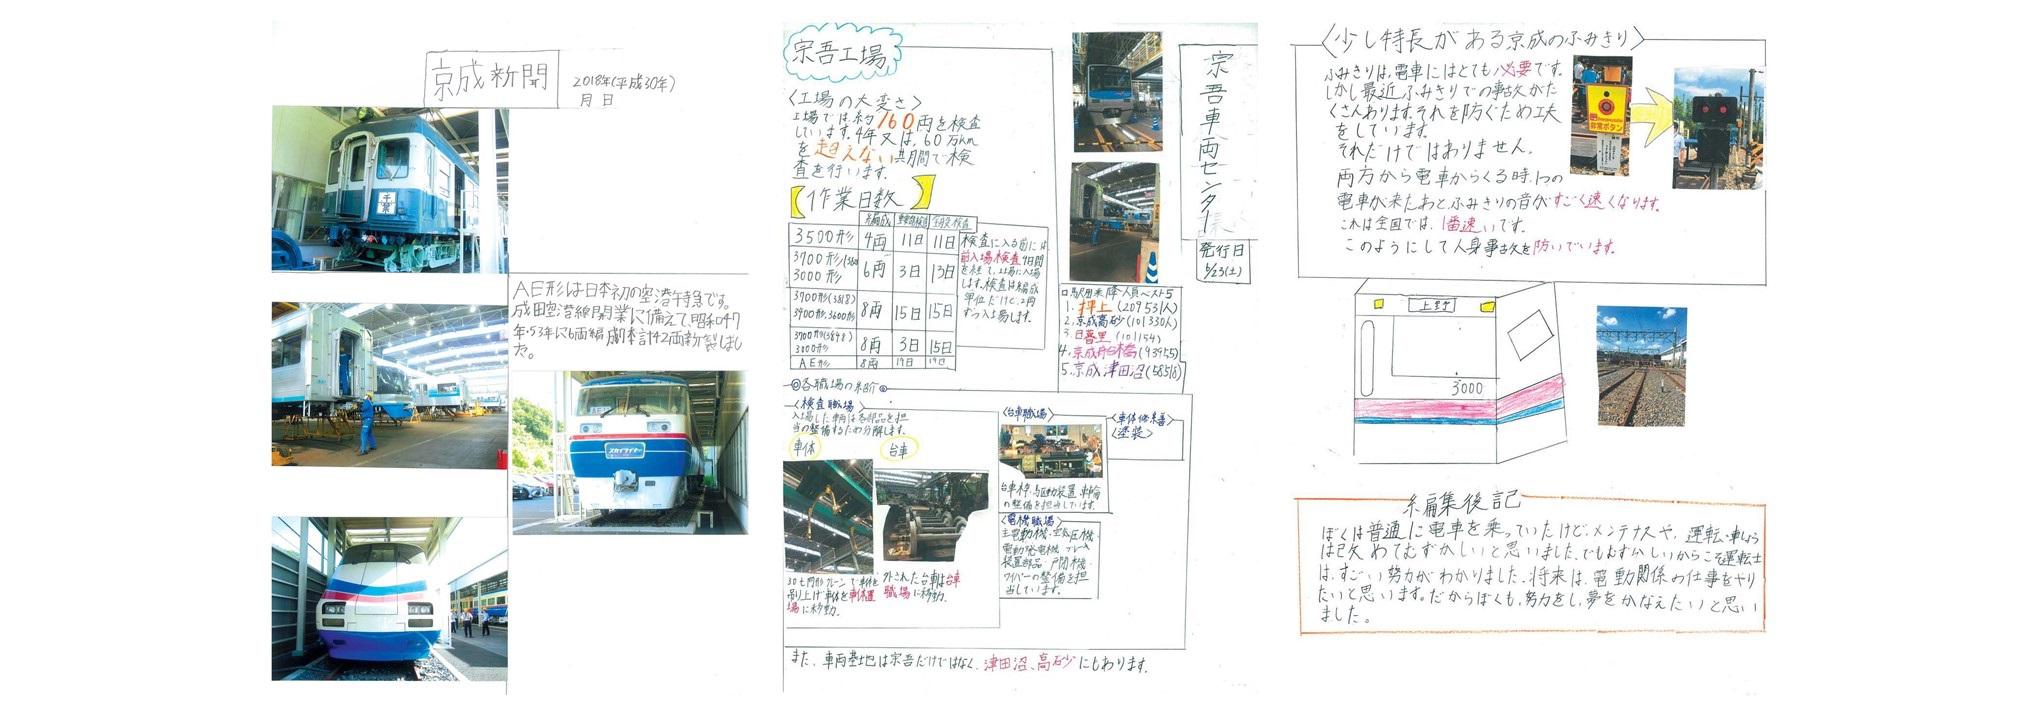 京成新聞
2018年(平成30年)
月 日
千葉
AE形は日本初の空港特急です。
成田空港線開業に備えて、昭和47
年・53年に6両編成
計42両新製しまし
た。
スカイライナー
宗吾工場
〈工場の大変さ〉
工場では、約760両を検査
しています。4年又は、60万km
を超えない
期間で検
査を行います。
【作業日数】
3500形 4両 11日 11日
3700形
3000形 6両 3日 13日
3700形(3818)
3400形,3600形 8両 15日 15日
3700形(3848)
3000形 8両 3日 15日
AE形 8両 19日 19日
検査に入る前には
前入場検査
を経て、工場に入場
します。検査は編成
単位だけど、2両
ずつ入場します。
◎各職場の紹介◎
〈検査職場〉
入場した車両は各部品を担
当の整備するため分解します。
車体
台車
30t円形クレーンで車体を
吊り上げ車体を車体置
場に移動。
外された台車は台車
職場に移動。
〈台車職場〉
台車枠・駆動装置・車輪
の整備を担当しています。
〈電機職場〉
主電動機・空気圧機・
電動発電機・ブレーキ
装置部品・戸閉機・
ワイパーの整備を担
当しています。
〈車体修繕〉
〈塗装〉
また、車両基地は宗吾だけではなく、津田沼、高砂にもあります。
宗吾車両センター
発行日
6/23(土)
駅別乗降人員ベスト5
1. 押上 (209531人)
2. 京成高砂 (101330人)
3. 日暮里 (101154)
4. 京成船橋 (93955)
5. 京成津田沼 (58518)
〈少し特長がある京成のふみきり〉
ふみきりは、電車にはとても必要です。
しかし最近ふみきりでの事故がた
くさんあります。それを防ぐため工夫
をしています。
それだけではありません。
両方から電車からくる時、1つの
電車が来たあと、ふみきりの音がすごく速くなります。
これは全国では、1番速いです。
このようにして人身事故を防いでいます。
非常ボタン
上野
3000
編集後記
ぼくは普通に電車を乗っていたけど、メンテナスや、運転・車しょう
は改めてむずかしいと思いました。でもむずかしいからこそ運転士
は、すごい努力がわかりました。将来は、電動関係の仕事をやり
たいと思います。だからぼくも、努力をし、夢をかなえたいと思い
ました。